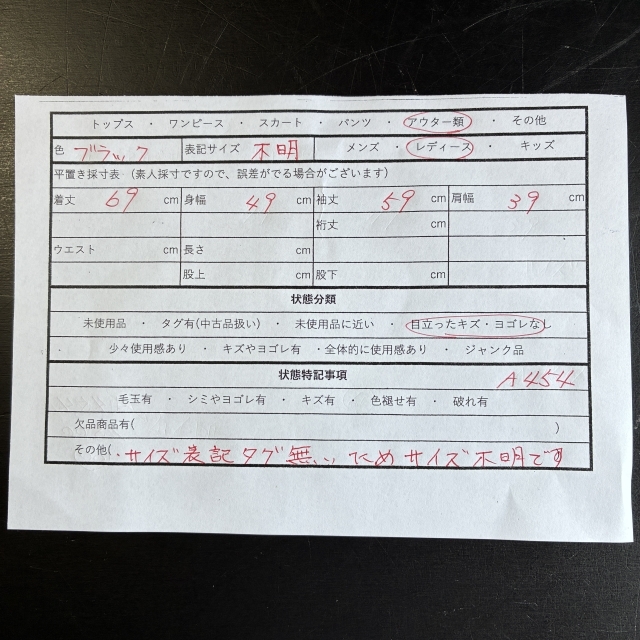 トップス ・ ワンピース ・ スカート ・ パンツ ・ アウター類 ・ その他
色 ブラック 表記サイズ 不明 メンズ ・ レディース ・ キッズ
平置き採寸表 (素人採寸ですので、誤差がでる場合がございます)
着丈 69 cm 身幅 49 cm 袖丈 59 cm 肩幅 39 cm
裄丈 cm
ウエスト cm 長さ cm
股上 cm 股下 cm
状態分類
未使用品 ・ タグ有(中古品扱い) ・ 未使用品に近い ・ 目立ったキズ・ヨゴレなし
・ 少々使用感あり ・ キズやヨゴレ有 ・全体的に使用感あり ・ ジャンク品
状態特記事項 A454
毛玉有 ・ シミやヨゴレ有 ・ キズ有 ・ 色褪せ有 ・ 破れ有
欠品商品有( )
その他(・サイズ表記タグ無いためサイズ不明です